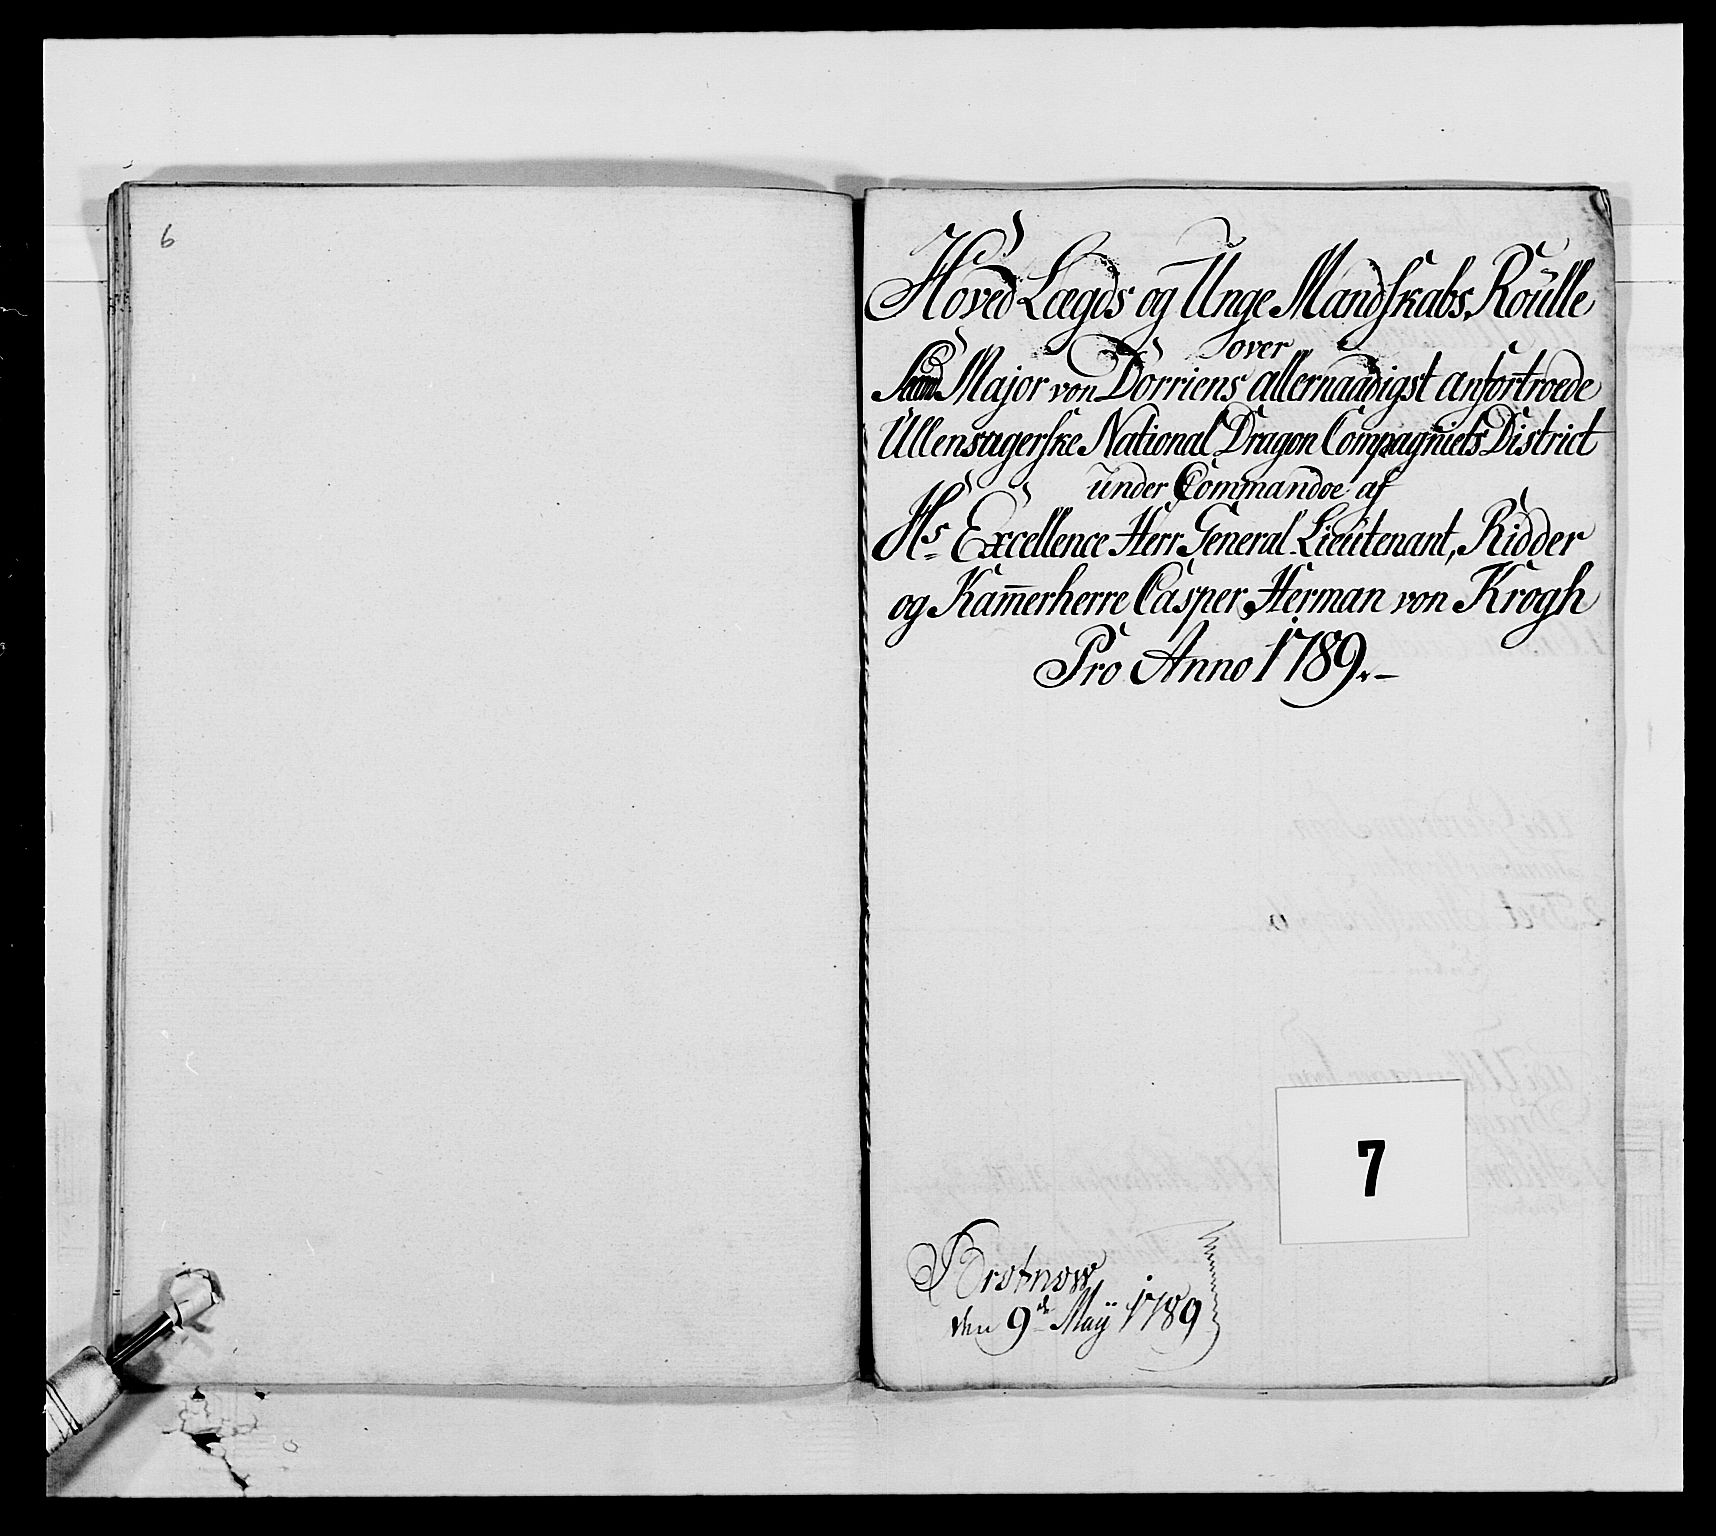 6
Hoved Lægds og Unge Mandskabs Roulle
over
Major von Dorriens allernaadigst anfortroede
Ullensagerske National Dragon Compagniets District
under Commandoe af
Hs Excellence Herr General-Lieutenant, Ridder
og Kam̅erherre Casper Herman von Krogh
Pro Anno 1789.
7
Brotnow
den 9de Maÿ 1789